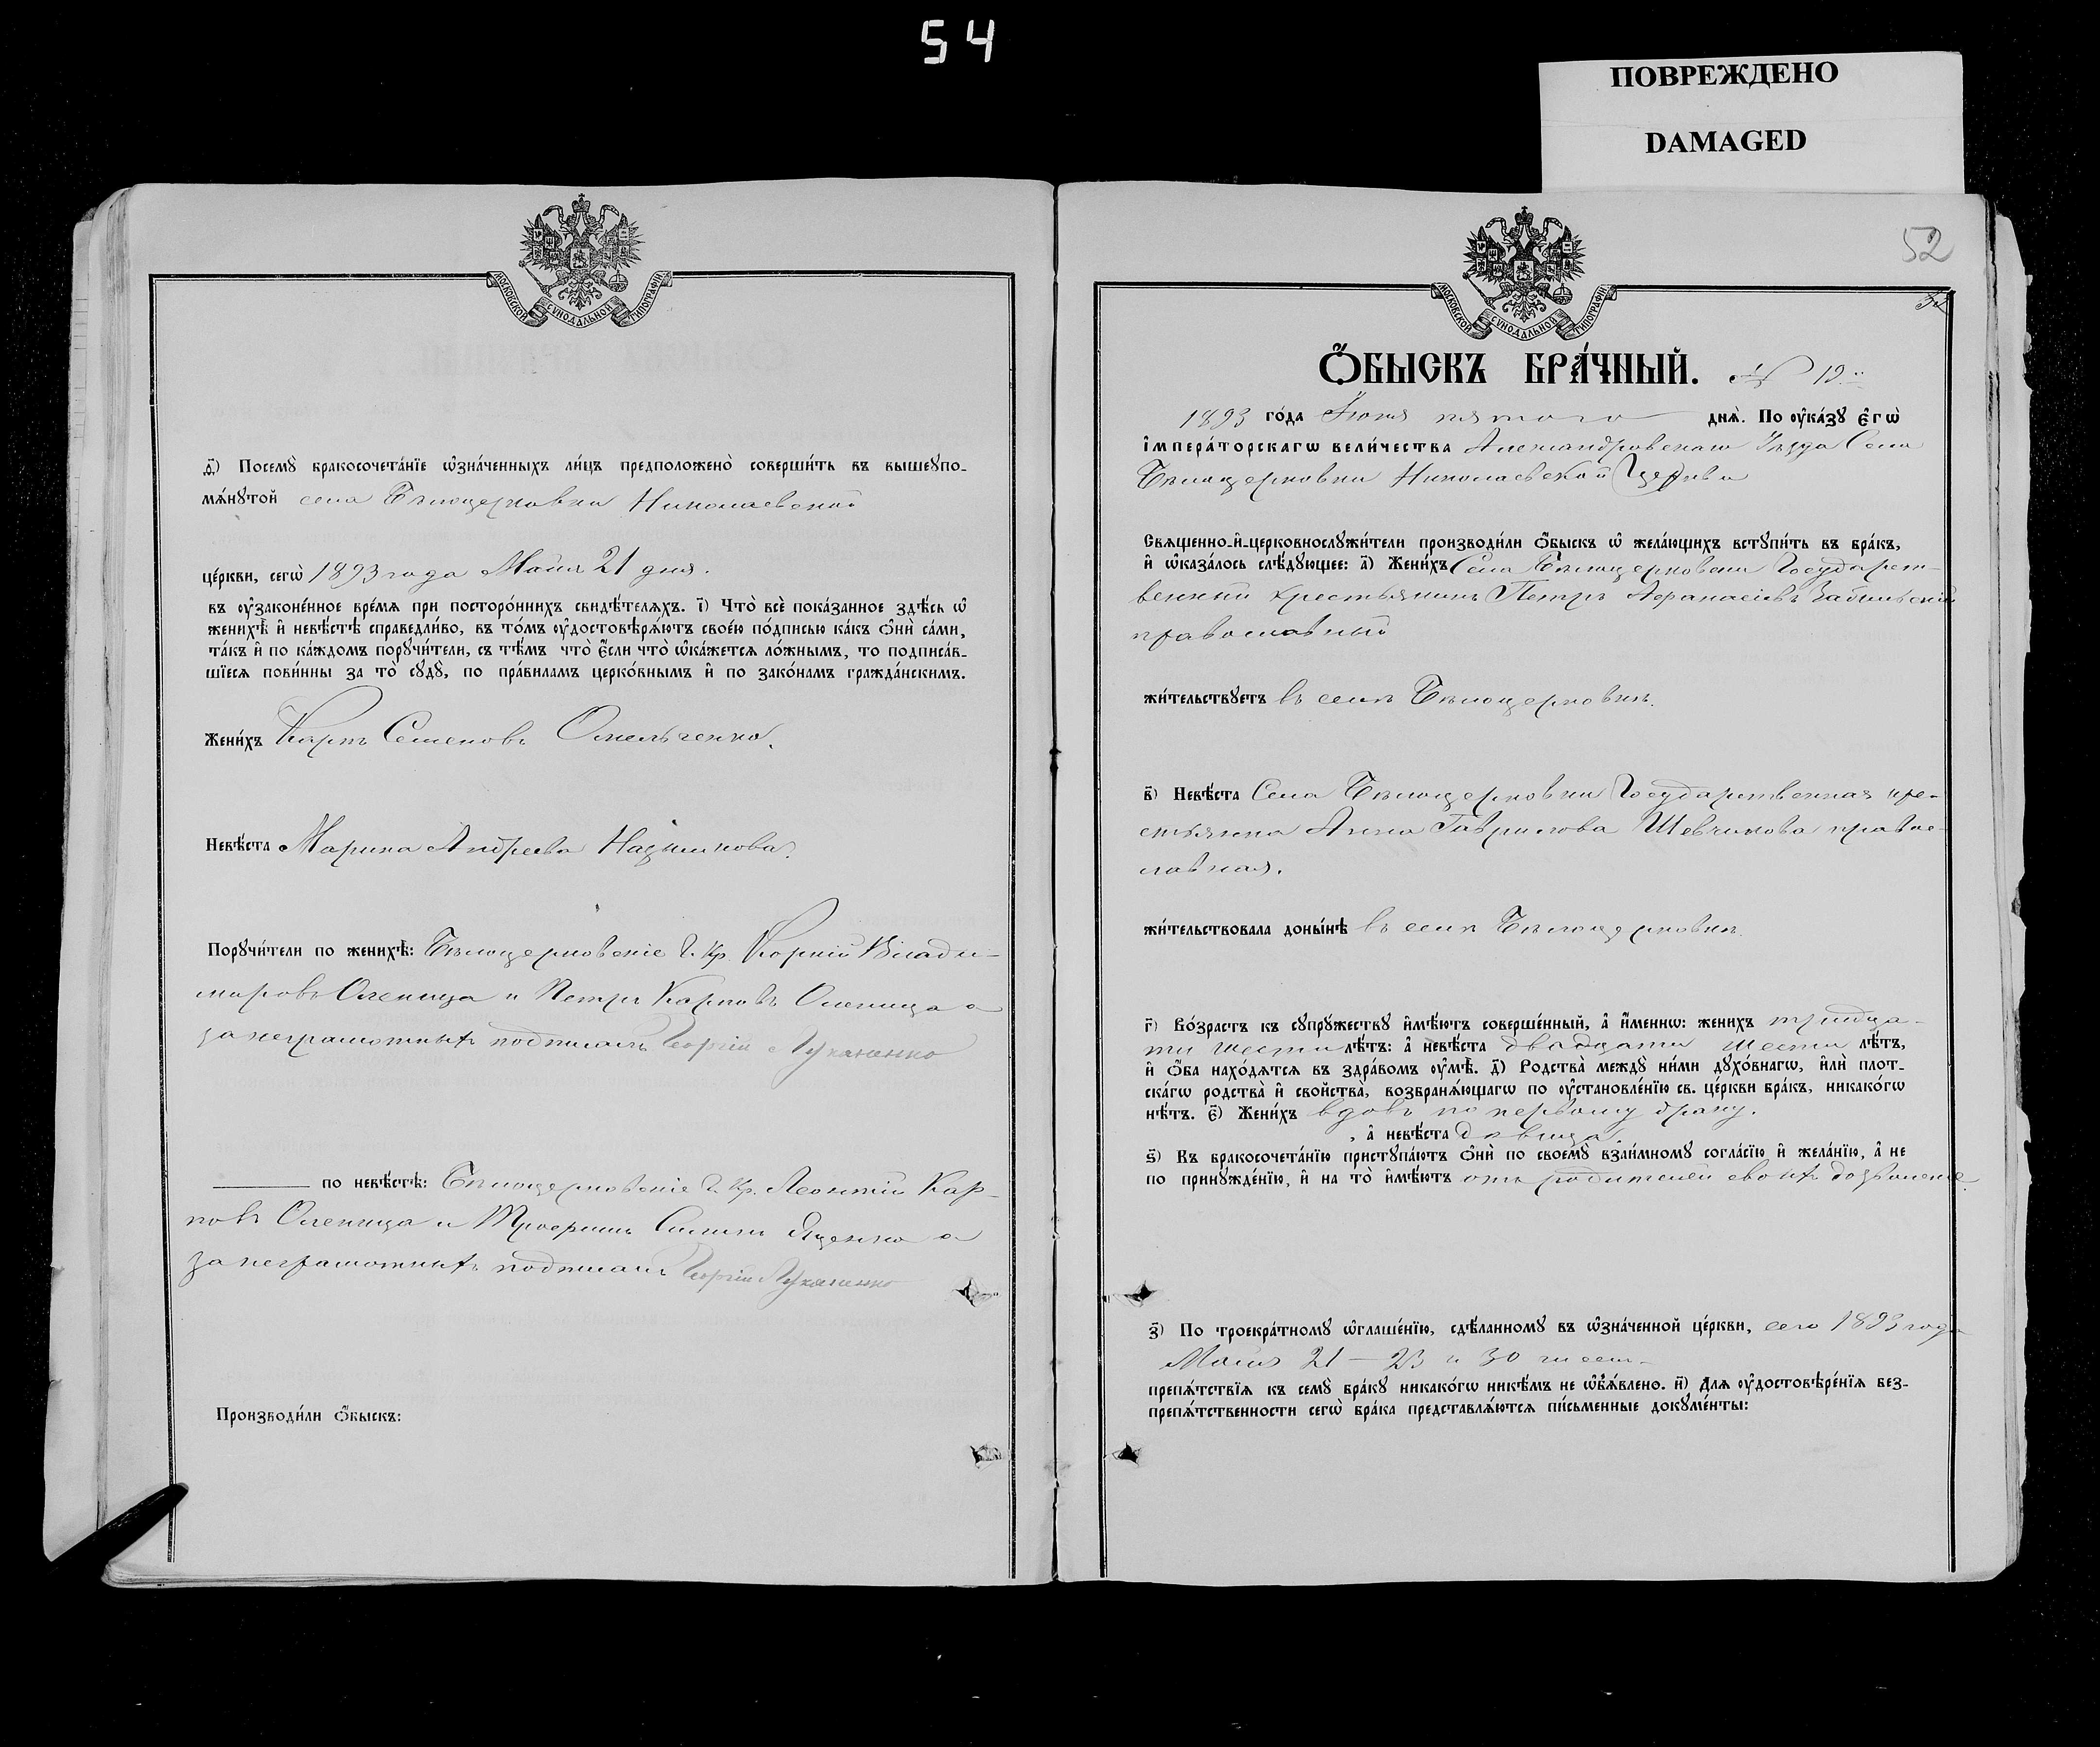 54
ПОВРЕЖДЕНО
DAMAGED
МОСКОВСКОЙ СѴНОДАЛЬНОЙ ТИПОГРАФІИ
д҃) Посемꙋ̀ бракосочета́нїе ѡ҆зна́ченныхъ ли́цъ предположено̀ соверши́ть въ вышеꙋпо-
мѧ́нꙋтой села Бѣлоцерковки Николаевской
це́ркви, сегѡ̀ 1893 года Маія 21 дня.
въ ᲂу҆зако́ненное вре́мѧ при посторо́ннихъ свидѣ́телѧхъ. і҃) Что̀ всѐ пока́занное здѣ́сь ѡ҆
женихѣ̀ и҆ невѣ́стѣ справедли́во, въ то́мъ ᲂу҆достовѣрѧ́ютъ свое́ю по́дписью ка́къ ѻ҆нѝ са́ми,
та́къ и҆ по ка́ждомъ порꙋчи́тели, съ тѣ́мъ что̀ є҆́сли что̀ ѡ҆ка́жетсѧ ло́жнымъ, то подписа́в-
шїесѧ пови́нны за то̀ сꙋдꙋ̀, по пра́виламъ церко́внымъ и҆ по зако́намъ гражда́нскимъ.
Жени́хъ Карпъ Семеновъ Омельченко.
Невѣ́ста Марина Андреева
Порꙋчи́тели по женихѣ̀: Бѣлоцерковскіе Г. Кр. Корній Влади-
міровъ Оленица и Петръ Карповъ Оленица а
за неграмотныхъ подписалъ Георгій Лукаченко
по невѣ́стѣ: Бѣлоцерковскіе Г. Кр. Леонтій Кар-
повъ Оленица и Трофимъ Яценко а
за неграмотныхъ подписалъ Георгій Лукаченко
Производи́ли ѻ҆́быскъ:
52
МОСКОВСКОЙ СѴНОДАЛЬНОЙ ТИПОГРАФІИ
Ѻ҆́быскъ бра́чный. № 19
1893 го́да Іюня пятого днѧ̀. По ᲂу҆ка́зꙋ є҆гѡ̀
і҆мпера́торскагѡ вели́чества Александровскаго Уѣзда Села
Бѣлоцерковки Николаевской Церкви
Свѧщенно-и҆-церковнослꙋжи́тели производи́ли ѻ҆́быскъ ѡ҆ жела́ющихъ встꙋпи́ть въ бра́къ,
и҆ ѡ҆каза́лось слѣ́дꙋющее: а҃) Жени́хъ Села Бѣлоцерковки Государст-
венный крестьянинъ Петръ Афанасіевъ
православный
жи́тельствꙋетъ въ селѣ Бѣлоцерковкѣ.
в҃) Невѣ́ста Села Бѣлоцерковки Государственная кре-
стьянка Анна Гаврилова Шевчикова правос-
лавная.
жи́тельствовала доны́нѣ въ селѣ Бѣлоцерковкѣ.
г҃) Во́зрастъ къ сꙋпрꙋ́жествꙋ и҆мѣ́ютъ соверше́нный, а҆ и҆́меннѡ: жени́хъ тридца-
ти шести лѣ́тъ: а҆ невѣ́ста двадцати шести лѣ́тъ,
и҆ ѻ҆́ба нахо́дѧтсѧ въ здра́вомъ ᲂу҆мѣ̀. д҃) Родства̀ междꙋ̀ ни́ми дꙋхо́внагѡ, и҆лѝ плот-
ска́гѡ родства̀ и҆ свойства̀, возбранѧ́ющагѡ по ᲂу҆становле́нїю св. це́ркви бра́къ, никако́гѡ
нѣ́тъ. є҃) Жени́хъ вдовъ по первому браку.
, а҆ невѣ́ста дѣвица
ѕ҃) Къ бракосочета́нїю пристꙋпа́ютъ ѻ҆нѝ по своемꙋ̀ взаи́мномꙋ согла́сїю и҆ жела́нїю, а҆ не
по принꙋжде́нїю, и҆ на то̀ и҆мѣ́ютъ отъ родителей своихъ дозволеніе.
з҃) По троекра́тномꙋ ѡ҆глаше́нїю, сдѣ́ланномꙋ въ ѡ҆зна́ченной це́ркви, сего 1893 года
Маія 21 — 23 и 30 чисел-
препѧ́тствїѧ къ семꙋ̀ бра́кꙋ никако́гѡ никѣ́мъ не ѡ҆бъѧ́влено. и҃) Длѧ ᲂу҆достовѣре́нїѧ без-
препѧ́тственности сегѡ̀ бра́ка представлѧ́ютсѧ пи́сьменные докꙋме́нты: